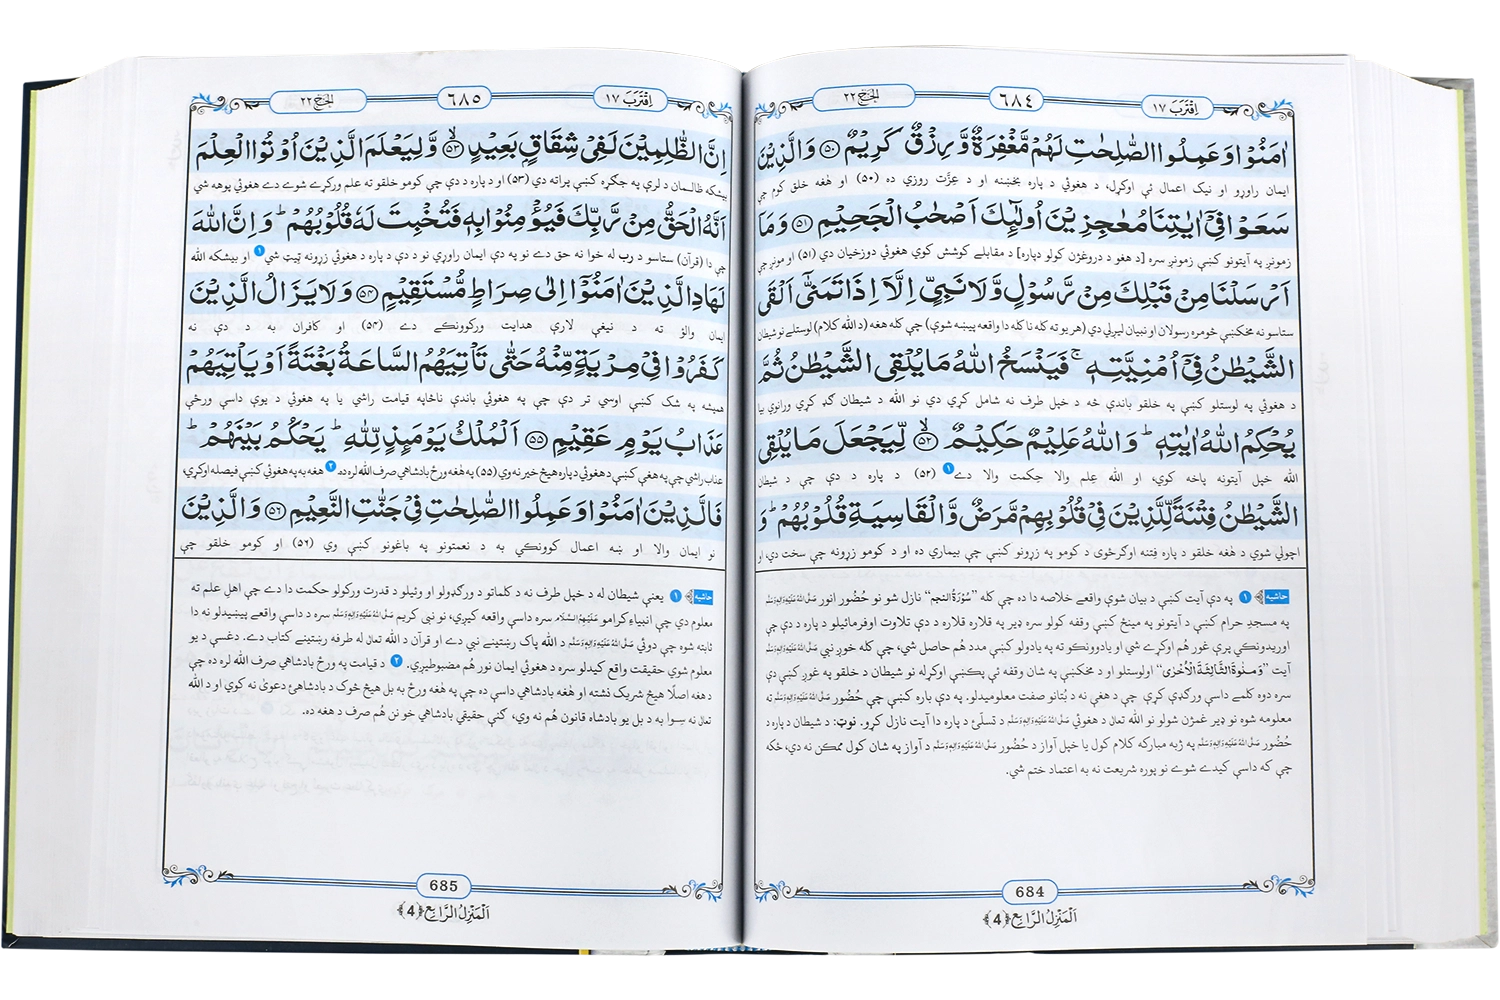 اِقْتَرَبَ ١٧
٦٨٤
الحَجّ ٢٢
اٰمَنُوْا وَعَمِلُوا الصّٰلِحٰتِ لَهُمْ مَّغْفِرَةٌ وَّرِزْقٌ كَرِيْمٌ ﴿٥٠﴾ وَالَّذِيْنَ
ايمان راوړو او نيک اعمال ئې اوکړل، د هغوئي د پاره بخښنه او د عِزَّت روزي ده (٥٠) او هٰغه خلق کوم چې
سَعَوْا فِيْٓ اٰيٰتِنَا مُعٰجِزِيْنَ اُولٰٓئِكَ اَصْحٰبُ الْجَحِيْمِ ﴿٥١﴾ وَمَآ
زمونږ په آيتونو کښې زمونږ سره [د هغو د دروغژن کولو دپاره] د مقابلے کوشش کوي هغوئي دوزخيان دي (٥١) او مونږ چې
اَرْسَلْنَا مِنْ قَبْلِكَ مِنْ رَّسُوْلٍ وَّلَا نَبِيٍّ اِلَّآ اِذَا تَمَنّٰىٓ اَلْقَى
ستاسو نه مخکښې څومره رسولان او نبيان ليږلي دي (هر يو ته کله نا کله دا واقعه پيښه شوې) چې کله هغه (د الله کلام) لوستلے نو شيطان
الشَّيْطٰنُ فِيْٓ اُمْنِيَّتِهٖ ۚ فَيَنْسَخُ اللّٰهُ مَا يُلْقِى الشَّيْطٰنُ ثُمَّ
د هغوئي په لوستلو کښې په خلقو باندې څه د خپل طرف نه شامل کړي دي نو الله د شيطان ګډ کړي ورانوي بيا
يُحْكِمُ اللّٰهُ اٰيٰتِهٖ ؕ وَاللّٰهُ عَلِيْمٌ حَكِيْمٌ ﴿٥٢﴾ لِّيَجْعَلَ مَا يُلْقِى
الله خپل آيتونه پاخه کوي، او الله عِلم والا حِکمت والا دے ١ (٥٢) د پاره د دې چې د شيطان
الشَّيْطٰنُ فِتْنَةً لِّلَّذِيْنَ فِيْ قُلُوْبِهِمْ مَّرَضٌ وَّالْقَاسِيَةِ قُلُوْبُهُمْ ؕ وَ
اچولي شوي د هٰغه خلقو د پاره فِتنه اوګرځوي د کومو په زړونو کښې چې بيماري ده او د کومو زړونه چې سخت دي، او
حاشيه ١ په دې آيت کښې د بيان شوې واقعې خلاصه دا ده چې کله "سُوْرَةُ النجم" نازل شو نو حُضُور انور صَلَّى اللهُ عَلَيْهِ وَاٰلِهٖ وَسَلَّم
په مسجدِ حرام کښې د آيتونو په مينځ کښې وقفه کولو سره ډير په قلاره قلاره د دې تلاوت اوفرمائيلو د پاره د دې چې
اوريدونکي پرې غور هُم اوکړے شي او يادوونکو ته په يادولو کښې مدد هُم حاصل شي، چې کله خوږ نبي صَلَّى اللهُ عَلَيْهِ وَاٰلِهٖ وَسَلَّم
آيت "وَمَنٰوةَ الثَّالِثَةَ الْاُخْرٰى" اولوستلو او د مخکښې په شان وقفه ئې پکښې اوکړله نو شيطان د خلقو په غوږ کښې دې
سره دوه کلمے داسې ورګډې کړې چې د هغې نه د بُتانو صفت معلوميدلو. په دې باره کښې چې حُضُور صَلَّى اللهُ عَلَيْهِ وَاٰلِهٖ وَسَلَّم ته
معلومه شوه نو ډير غمژن شولو نو الله تعالیٰ د هغوئي صَلَّى اللهُ عَلَيْهِ وَاٰلِهٖ وَسَلَّم د تسلّئ د پاره دا آيت نازل کړو. نوټ: د شيطان د پاره د
حُضُور صَلَّى اللهُ عَلَيْهِ وَاٰلِهٖ وَسَلَّم په ژبه مبارکه کلام کول يا خپل آواز د حُضُور صَلَّى اللهُ عَلَيْهِ وَاٰلِهٖ وَسَلَّم د آواز په شان کول ممکن نه دي، ځکه
چې که داسې کيدے شوے نو پوره شريعت نه به اعتماد ختم شي.
684
اَلْمَنْزِلُ الرَّابِع ﴿4﴾
اِقْتَرَبَ ١٧
٦٨٥
الحَجّ ٢٢
اِنَّ الظّٰلِمِيْنَ لَفِيْ شِقَاقٍۢ بَعِيْدٍ ﴿٥٣﴾ وَّلِيَعْلَمَ الَّذِيْنَ اُوْتُوا الْعِلْمَ
بيشکه ظالمان د لرې په جګړه کښې پراته دي (٥٣) او د پاره د دې چې کومو خلقو ته علم ورکړے شوے دے هغوئي پوهه شي
اَنَّهُ الْحَقُّ مِنْ رَّبِّكَ فَيُؤْمِنُوْا بِهٖ فَتُخْبِتَ لَهٗ قُلُوْبُهُمْ ؕ وَاِنَّ اللّٰهَ
چې دا (قرآن) ستاسو د رب له خوا نه حق دے نو په دې ايمان راوړي نو د دې د پاره د هغوئي زړونه ټيټ شي ١ او بيشکه الله
لَهَادِ الَّذِيْنَ اٰمَنُوْٓا اِلٰى صِرَاطٍ مُّسْتَقِيْمٍ ﴿٥٤﴾ وَلَا يَزَالُ الَّذِيْنَ
ايمان والؤ ته د نيغې لارې هدايت ورکوونکے دے (٥٤) او کافران به د دې نه
كَفَرُوْا فِيْ مِرْيَةٍ مِّنْهُ حَتّٰى تَاْتِيَهُمُ السَّاعَةُ بَغْتَةً اَوْ يَاْتِيَهُمْ
هميشه په شک کښې اوسي تر دې چې په هغوئي باندې ناڅاپه قيامت راشي يا په هغوئي د يوې داسې ورځې
عَذَابُ يَوْمٍ عَقِيْمٍ ﴿٥٥﴾ اَلْمُلْكُ يَوْمَئِذٍ لِّلّٰهِ ؕ يَحْكُمُ بَيْنَهُمْ ؕ
عذاب راشي چې په هغې کښې د هغوئي دپاره هيڅ خير نه وي (٥٥) په هٰغه ورځ بادشاهي صرف الله لره ده ٢ هغه به په هغوئي کښې فيصله اوکړي،
فَالَّذِيْنَ اٰمَنُوْا وَعَمِلُوا الصّٰلِحٰتِ فِيْ جَنّٰتِ النَّعِيْمِ ﴿٥٦﴾ وَالَّذِيْنَ
نو ايمان والا او ښه اعمال کوونکي به د نعمتونو په باغونو کښې وي (٥٦) او کومو خلقو چې
حاشيه ١ يعنې شيطان له د خپل طرف نه د کلماتو د ورګډولو او وئيلو د قدرت ورکولو حکمت دا دے چې اهلِ علم ته
معلوم دي چې انبياءِ کرامو عَلَيْهِمُ السَّلَام سره داسې واقعه کيږي، نو نبي کريم صَلَّى اللهُ عَلَيْهِ وَاٰلِهٖ وَسَلَّم سره د داسې واقعے پيښيدلو نه دا
ثابته شوه چې دوئي صَلَّى اللهُ عَلَيْهِ وَاٰلِهٖ وَسَلَّم د الله پاک رښتينے نبي دے او قرآن د الله تعالیٰ له طرفه رښتينے کتاب دے. دغسې د يو
معلوم شوي حقيقت واقع کيدلو سره د هغوئي ايمان نور هُم مضبوطيږي. ٢ د قيامت په ورځ بادشاهي صرف الله لره ده چې
د هغه اصلًا هيڅ شريک نشته او هٰغه بادشاهي داسې ده چې په هغه ورځ به بل هيڅ څوک د بادشاهئ دعوىٰ نه کوي او د الله
تعالیٰ نه سِوا به د بل يو بادشاه قانون هُم نه وي، ګنې حقيقي بادشاهي خو نن هُم صرف د هغه ده.
685
اَلْمَنْزِلُ الرَّابِع ﴿4﴾